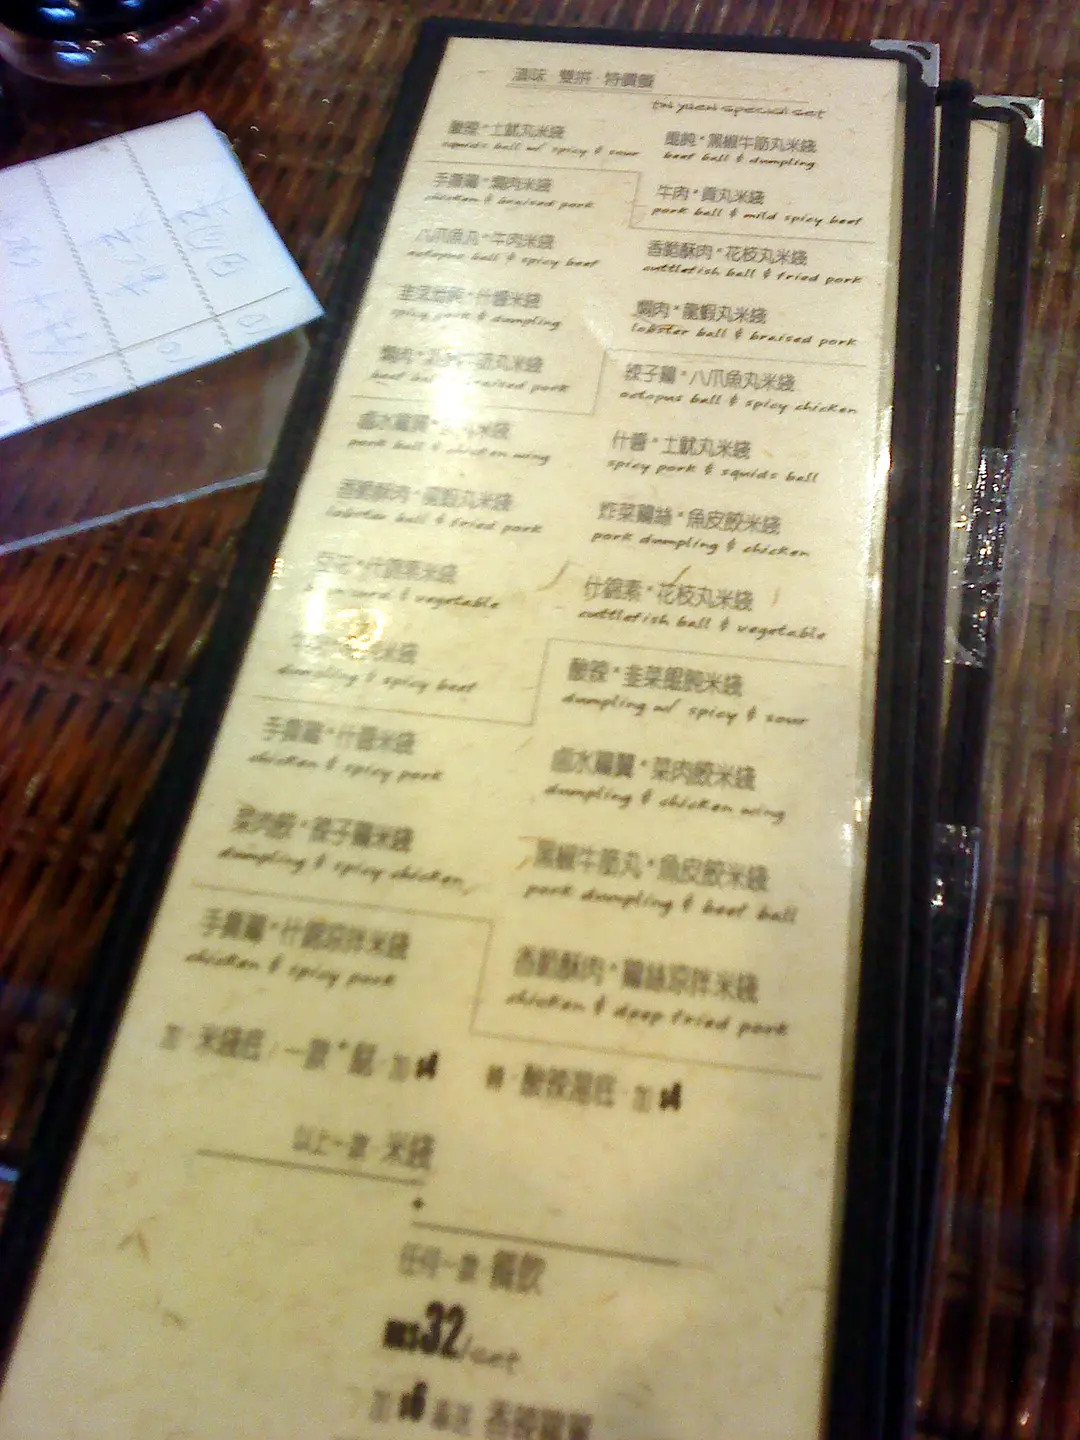 滇味·雙拼·特價餐
tai yuen special set
酸辣·土魷丸米綫
squids ball w/ spicy & sour
手撕雞·燜肉米綫
chicken & braised pork
八爪魚丸·牛肉米綫
octopus ball & spicy beef
韭菜餛飩·什醬米綫
spicy pork & dumpling
燜肉·牛筋丸米綫
beef ball & braised pork
鹵水雞翼·米綫
pork ball & chicken wing
香脆酥肉·龍蝦丸米綫
lobster ball & fried pork
豆花·什錦素米綫
& vegetable
米綫
dumpling & spicy beef
手撕雞·什醬米綫
chicken & spicy pork
菜肉餃·辣子雞米綫
dumpling & spicy chicken
手撕雞·什錦涼拌米綫
chicken & spicy pork
餛飩·黑椒牛筋丸米綫
beef ball & dumpling
牛肉·貢丸米綫
pork ball & mild spicy beef
香脆酥肉·花枝丸米綫
cuttlefish ball & fried pork
燜肉·龍蝦丸米綫
lobster ball & braised pork
辣子雞·八爪魚丸米綫
octopus ball & spicy chicken
什醬·土魷丸米綫
spicy pork & squids ball
炸菜雞絲·魚皮餃米綫
pork dumpling & chicken
什錦素·花枝丸米綫
cuttlefish ball & vegetable
酸辣·韭菜餛飩米綫
dumpling w/ spicy & sour
鹵水雞翼·菜肉餃米綫
dumpling & chicken wing
黑椒牛筋丸·魚皮餃米綫
pork dumpling & beef ball
香脆酥肉·雞絲涼拌米綫
chicken & deep fried pork
加·米綫底/一款·餸·加$4
轉·酸辣湯底·加$4
以上一款 米綫
+
任何一款 餐飲
32/set
加$6